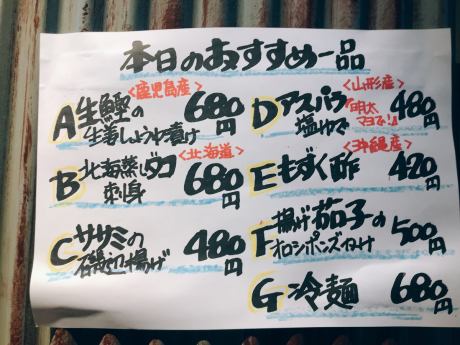 本日のおすすめ一品
<鹿児島産>
A 生鰹の
生姜しょうゆ漬け
680円
<北海道>
B 北海蒸しダコ
刺身
680円
C ササミの
磯辺揚げ
480円
<山形産>
D アスパラ
塩ゆで
「明太
マヨで!」
480円
<沖縄産>
E もずく酢
420円
F 揚げ茄子の
オロシポンズかけ
500円
G 冷麺
680円